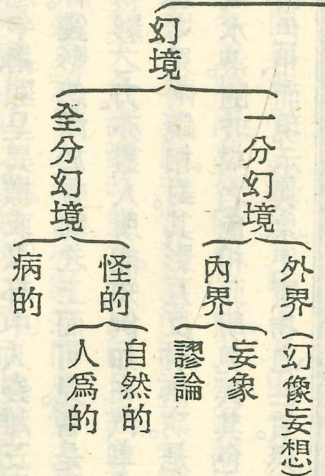 幻境
一分幻境
外界(幻像妄想)
內界
妄象
謬論
全分幻境
怪的
自然的
人爲的
病的